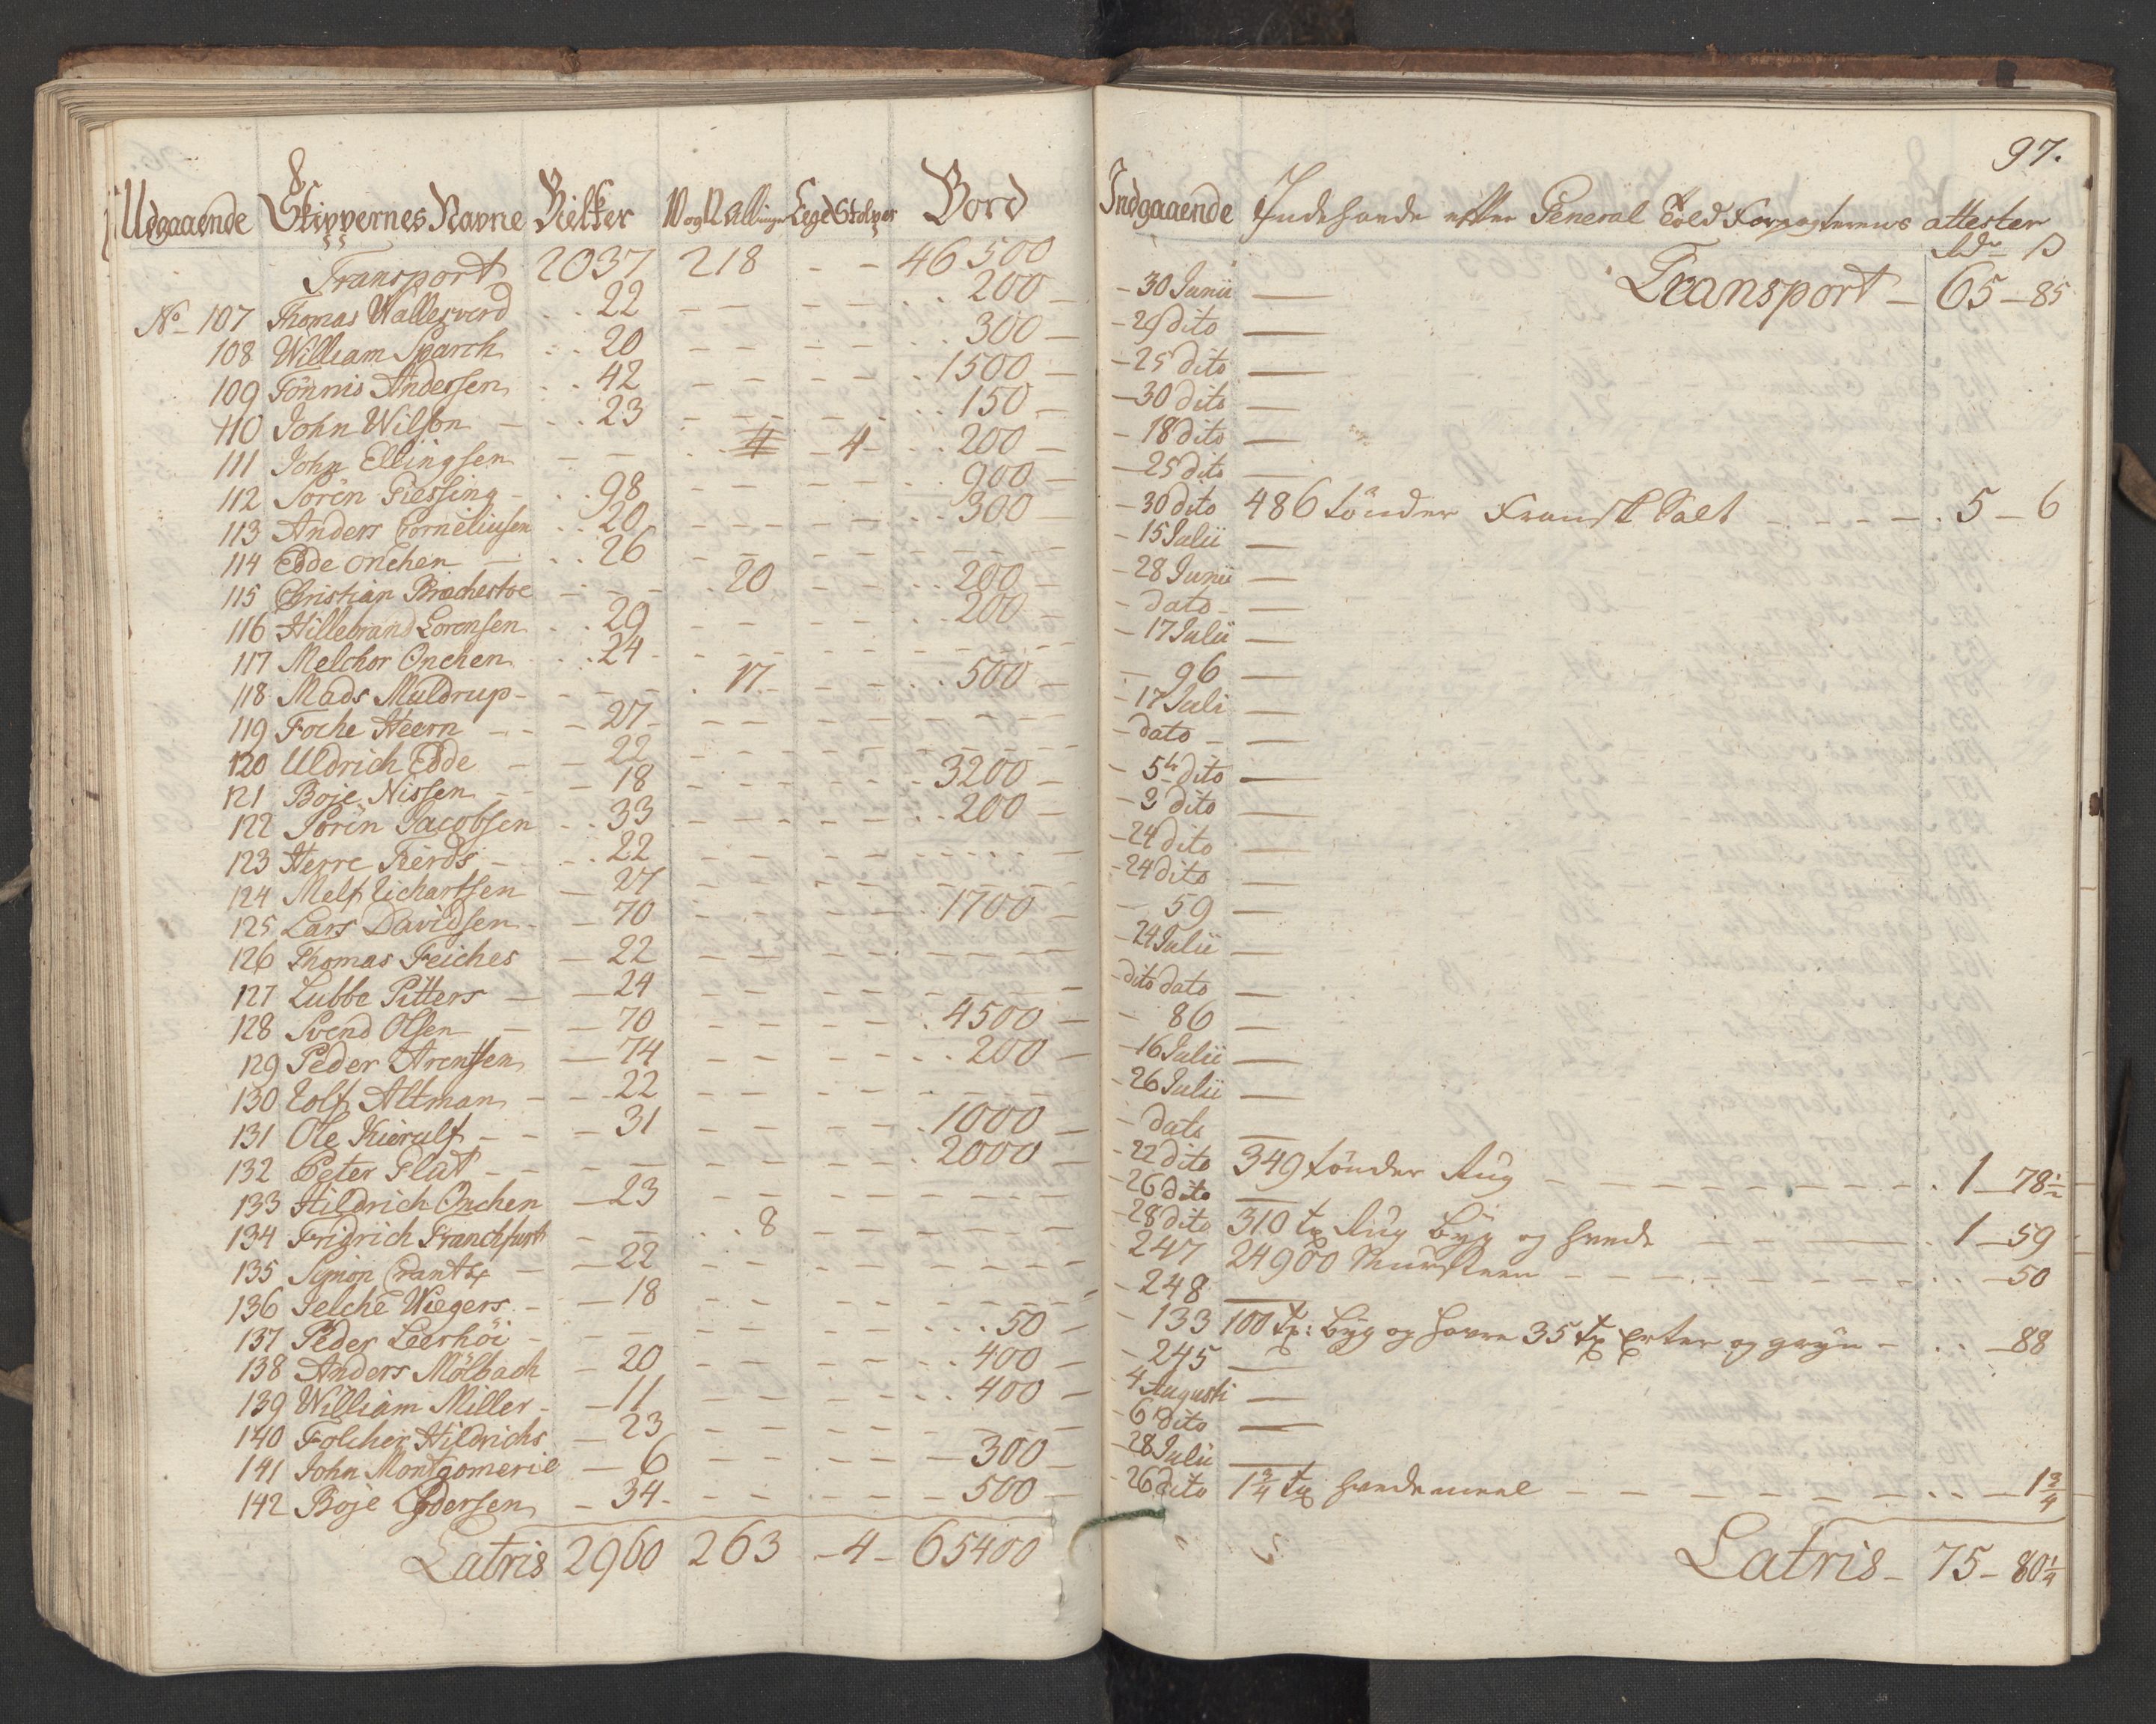 8
Udgaaende Skippernes Navne Bielker Bord
Transport 2037 218 - - 46500
No 107 Thomas Wallesverd 22 200
108 William Sparch 20 300
109 Tönnis Andersen 42 1500
110 John Wilson 23 150
111 John Ellingsen 4 4 200
112 Sören Giessing 98 900
113 Anders Corneliusen 20 300
114 Edde Onchen 26
115 Christian Brachestoe 20 200
116 Hillebrand Lorensen 29 200
117 Melchor Onchen 24
118 Mads Muldrup 17 500
119 Foche Heern 27
120 Uldrich Edde 22
121 Boje Nissen 18 3200
122 Sören Jacobsen 33 200
123 Herre Tierds 22
124 Melf Richartsen 27
125 Lars Davidsen 70 1700
126 Thomas Feiches 22
127 Lubbe Pitters 24
128 Svend Olsen 70 4500
129 Peder Arentsen 74 200
130 Rolf Altman 22
131 Ole Kierulf 31 1000
132 Peter Plat 2000
133 Hildrich Onchen 23
134 Fridrich Franchfurth 8
135 Simon Crantz 22
136 Jelche Wiegers 18
137 Peder Leerhöi 50
138 Anders Mölbach 20 400
139 William Miller 11 400
140 Folcher Hildrichs 23
141 John Montgomerie 6 300
142 Boje Pedersen 34 500
Latris 2960 263 - 4 - 65400
97.
Indgaaende Indehavende efter General Told Forpagternes attester
Rdr ß
Transport - 65 - 85
- 30 Junii
- 29 dito
- 25 dito
- 30 dito
- 18 dito
- 25 dito
- 30 dito 486 tönder Fransk Salt 5 - 6
- 15 Julii
- 28 Junii
- dato
- 17 Julii
- 96
- 17 Juli
- dato
- 5te dito
- 3 dito
- 24 dito
- 24 dito
- 59
- 24 Julii
- dito dato
- 86
- 16 Julii
- 26 Julii
- dato
- 22 dito 349 tönder Rug 1 - 78½
- 26 dito
- 28 dito 310 tr Rug Byg og hvede 1 - 59
247 24900 Muursteen 50
- 248
- 133 100 tr: Byg og Havre 35 tr Erter og gryn - 88
- 245
- 4 Augusti
- 6 dito
- 28 Julii
- 26 dito 1¾ tr hvedemeel - 1¾
Latris - 75 - 80¼